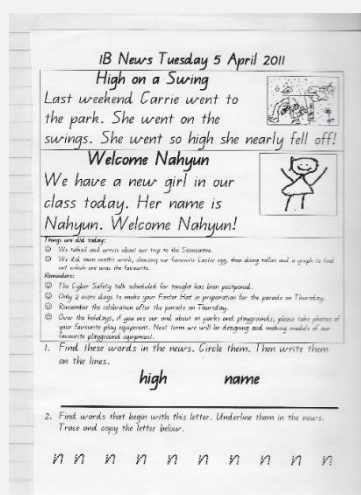 1B News Tuesday 5 April 2011
High on a Swing
Last weekend Carrie went to
the park. She went on the
swings. She went so high she nearly fell off!
Welcome Nahyun
We have a new girl in our
class today. Her name is
Nahyun. Welcome Nahyun!
Things we did today:
We talked and wrote about our trip to the
We did more maths work, choosing our favourite Easter egg, then doing tallies and a graph to find
out which one was the favourite.
Reminders:
The Cyber Safety talk scheduled for tonight has been postponed.
Only 2 more days to make your Easter Hat in preparation for the parade on Thursday.
Remember the celebration after the parade on Thursday.
Over the holidays, if you are out and about at parks and playgrounds, please take photos of
your favourite play equipment. Next term we will be designing and making models of our
favourite playground equipment.
1. Find these words in the news. Circle them. Then write them
on the lines.
high name
2. Find words that begin with this letter. Underline them in the news.
Trace and copy the letter below.
n n n n n n n n n n